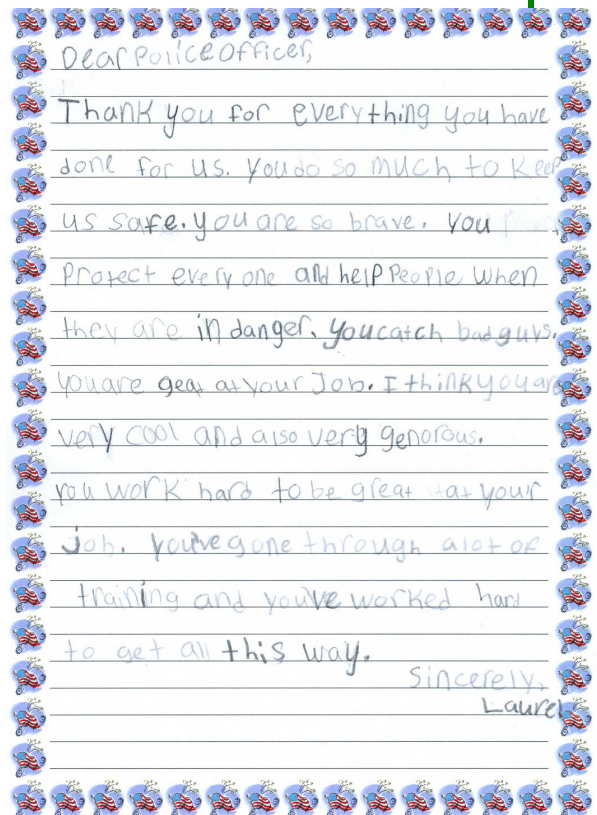 Dear Police Officer,
Thank you for everything you have
done for us. You do so much to keep
us safe. you are so brave. You
Protect every one and help People when
they are in danger. You catch bad guys.
You are geat at your Job. I think you are
very cool and also very genorous.
You work hard to be great at your
job. You've gone through alot of
training and you've worked hard
to get all this way.
Sincerely,
Laurel